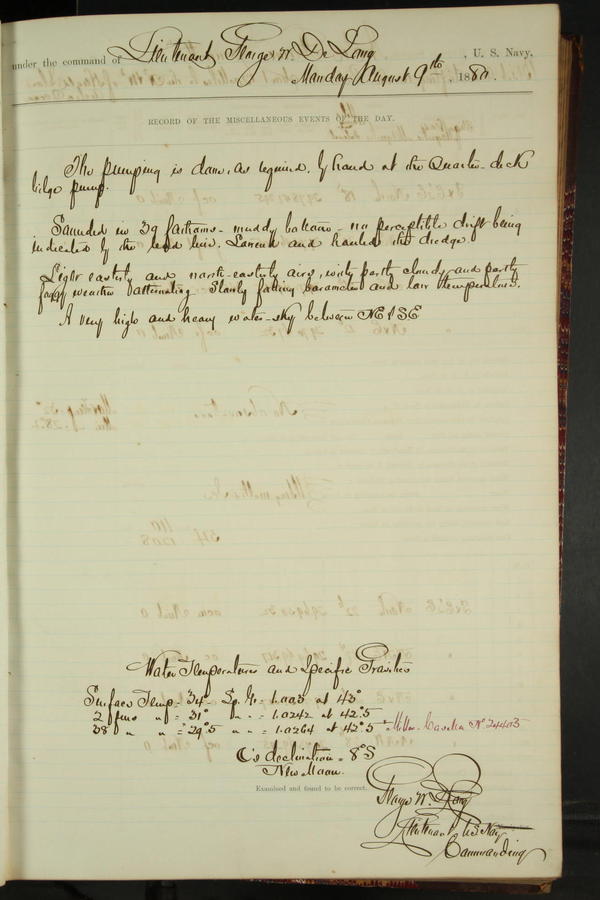 under the command of Lieutenant George W. De Long, U. S. Navy.
Monday August 9th, 1880.
RECORD OF THE MISCELLANEOUS EVENTS OF THE DAY.
The pumping is done, as required, by hand at the Quarter-deck
bilge pump.
Sounded in 39 fathoms - muddy bottom - no perceptible drift being
indicated by the lead line. Lowered and hauled the dredge
Light easterly and north-easterly airs, with partly cloudy and partly
foggy weather alternating Slowly falling barometer and low temperatures.
A very high and heavy water-sky between NE & SE
Water Temperatures and Specific Gravities
Surface Temp = 34° Sp. Gr = 1.005 at 43°
2 fms " = 31° " " = 1.0242 at 42.5
38 " " = 29°.5 " " = 1.0264 at 42°.5 Miller-Casella No 24405
☾'s declination = 8° S
New Moon.
Examined and found to be correct.
George W. De Long
Lieutenant U.S. Navy
Commanding